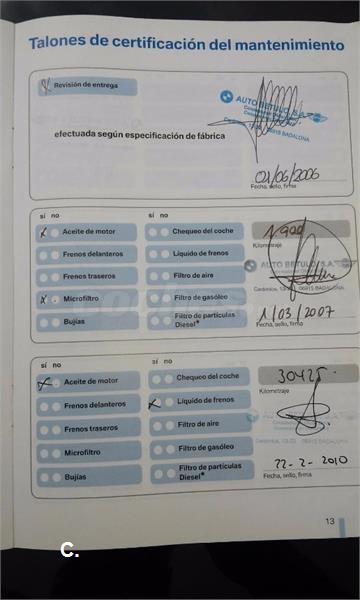 Talones de certificación del mantenimiento
Revisión de entrega
AUTO BETULO, S.A.
08915 BADALONA
efectuada según especificación de fábrica
01/06/2006
Fecha, sello, firma
sí no
sí no
Aceite de motor
Chequeo del coche
Frenos delanteros
Líquido de frenos
Kilometraje
AUTO BETULO, S.A.
Frenos traseros
Filtro de aire
08915 BADALONA
Microfiltro
Filtro de gasóleo
1/03/2007
Bujías
Filtro de partículas
Diesel*
Fecha, sello, firma
sí no
sí no
Aceite de motor
Chequeo del coche
30425
Kilometraje
Frenos delanteros
Líquido de frenos
Frenos traseros
Filtro de aire
08915 BADALONA
Microfiltro
Filtro de gasóleo
22-2-2010
Bujías
Filtro de partículas
Diesel*
Fecha, sello, firma
13
C.